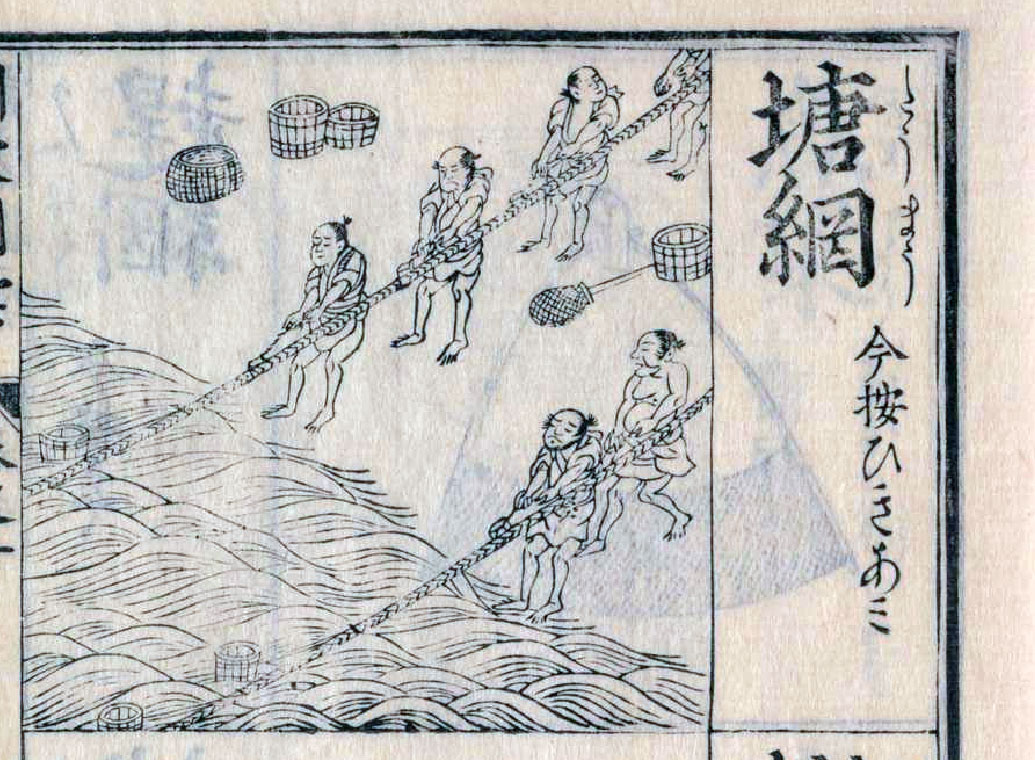 塘網
たうまう
今按ひきあミ